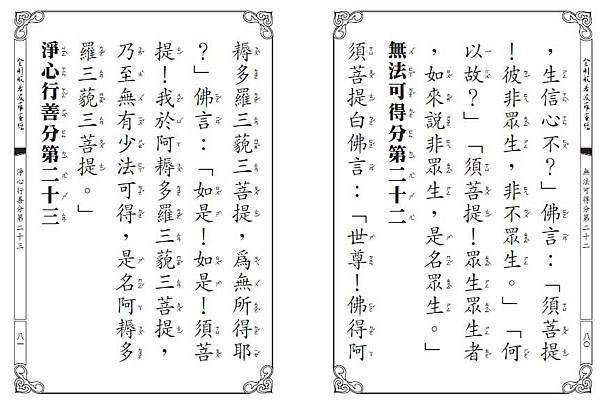 金剛般若波羅蜜經
無法可得分第二十二
八〇
，生信心不？」佛言：「須菩提
！彼非眾生，非不眾生。」「何
以故？」「須菩提！眾生眾生者
，如來說非眾生，是名眾生。」
無法可得分第二十二
須菩提白佛言：「世尊！佛得阿
耨多羅三藐三菩提，爲無所得耶
？」佛言：「如是！如是！須菩
提！我於阿耨多羅三藐三菩提，
乃至無有少法可得，是名阿耨多
羅三藐三菩提。」
淨心行善分第二十三
金剛般若波羅蜜經
淨心行善分第二十三
八一